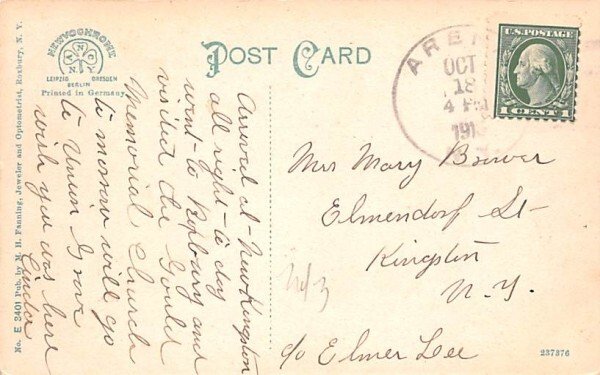 POST CARD
NEWVOCHROME
A N C
N.Y.
LEIPZIG DRESDEN
BERLIN
Printed in Germany
No. E 3401 Pub. by M. H. Fanning, Jeweler and Optometrist, Roxbury, N. Y.
Arrived at New Kingston
all right to day
went to Roxbury and
visited the Gould
Memorial Church
to morrow will go
to Union Grove
wish you was here
AREN
OCT
18
4 PM
191
U.S. POSTAGE
1 CENT 1
Mrs Mary Brower
Elmendorf St
Kingston
N.Y.
c/o Elmer Lee
237376